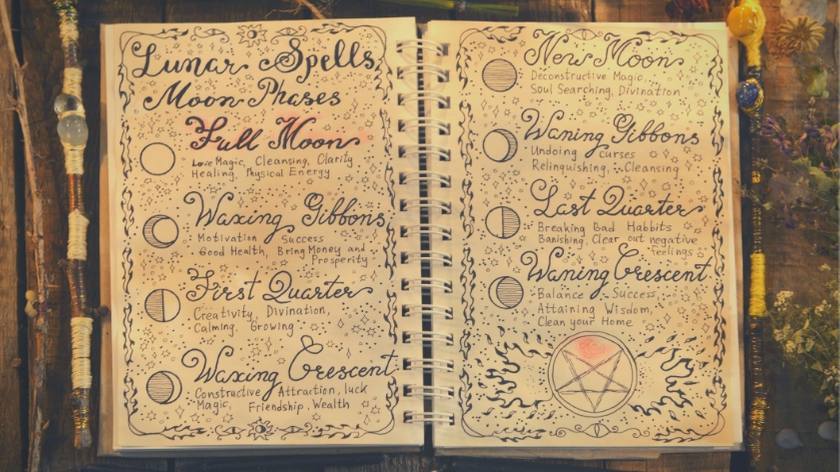 Lunar Spells
Moon Phases
Full Moon
Love Magic, Cleansing, Clarity
Healing, Physical Energy
Waxing Gibbons
Motivation Success
Good Health, Bring Money and
Prosperity
First Quarter
Creativity, Divination,
Calming, Growing
Waxing Crescent
Constructive Attraction, luck
Magic, Friendship, Wealth
New Moon
Deconstructive Magic
Soul Searching, Divination
Waning Gibbons
Undoing curses
Relinquishing, Cleansing
Last Quarter
Breaking Bad Habbits
Banishing, Clear out negative
feelings
Waning Crescent
Balance Success
Attaining Wisdom,
Clean your Home